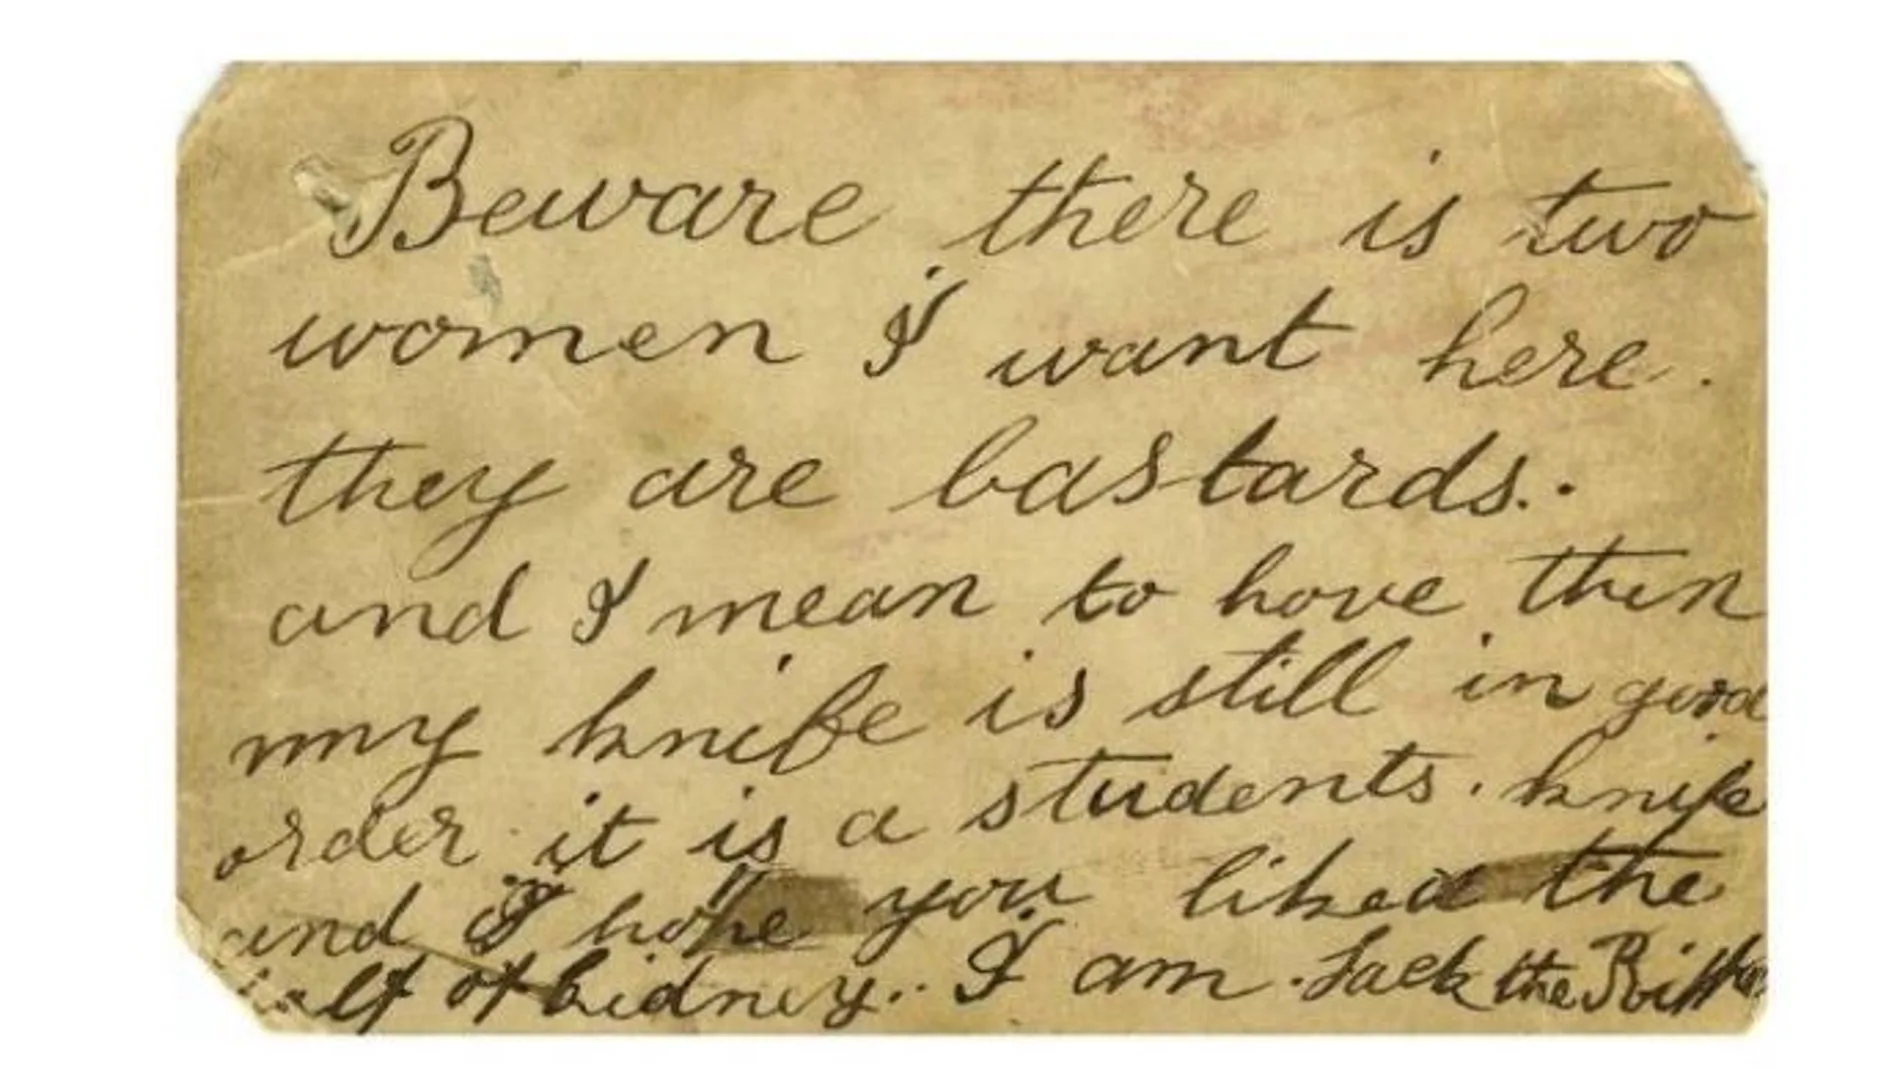 Beware there is two
women I want here.
they are bastards..
and I mean to hove then
my knife is still in good
order it is a students. knife
and I hope you liked the
half of kidney.. I am . Jack the Ripper